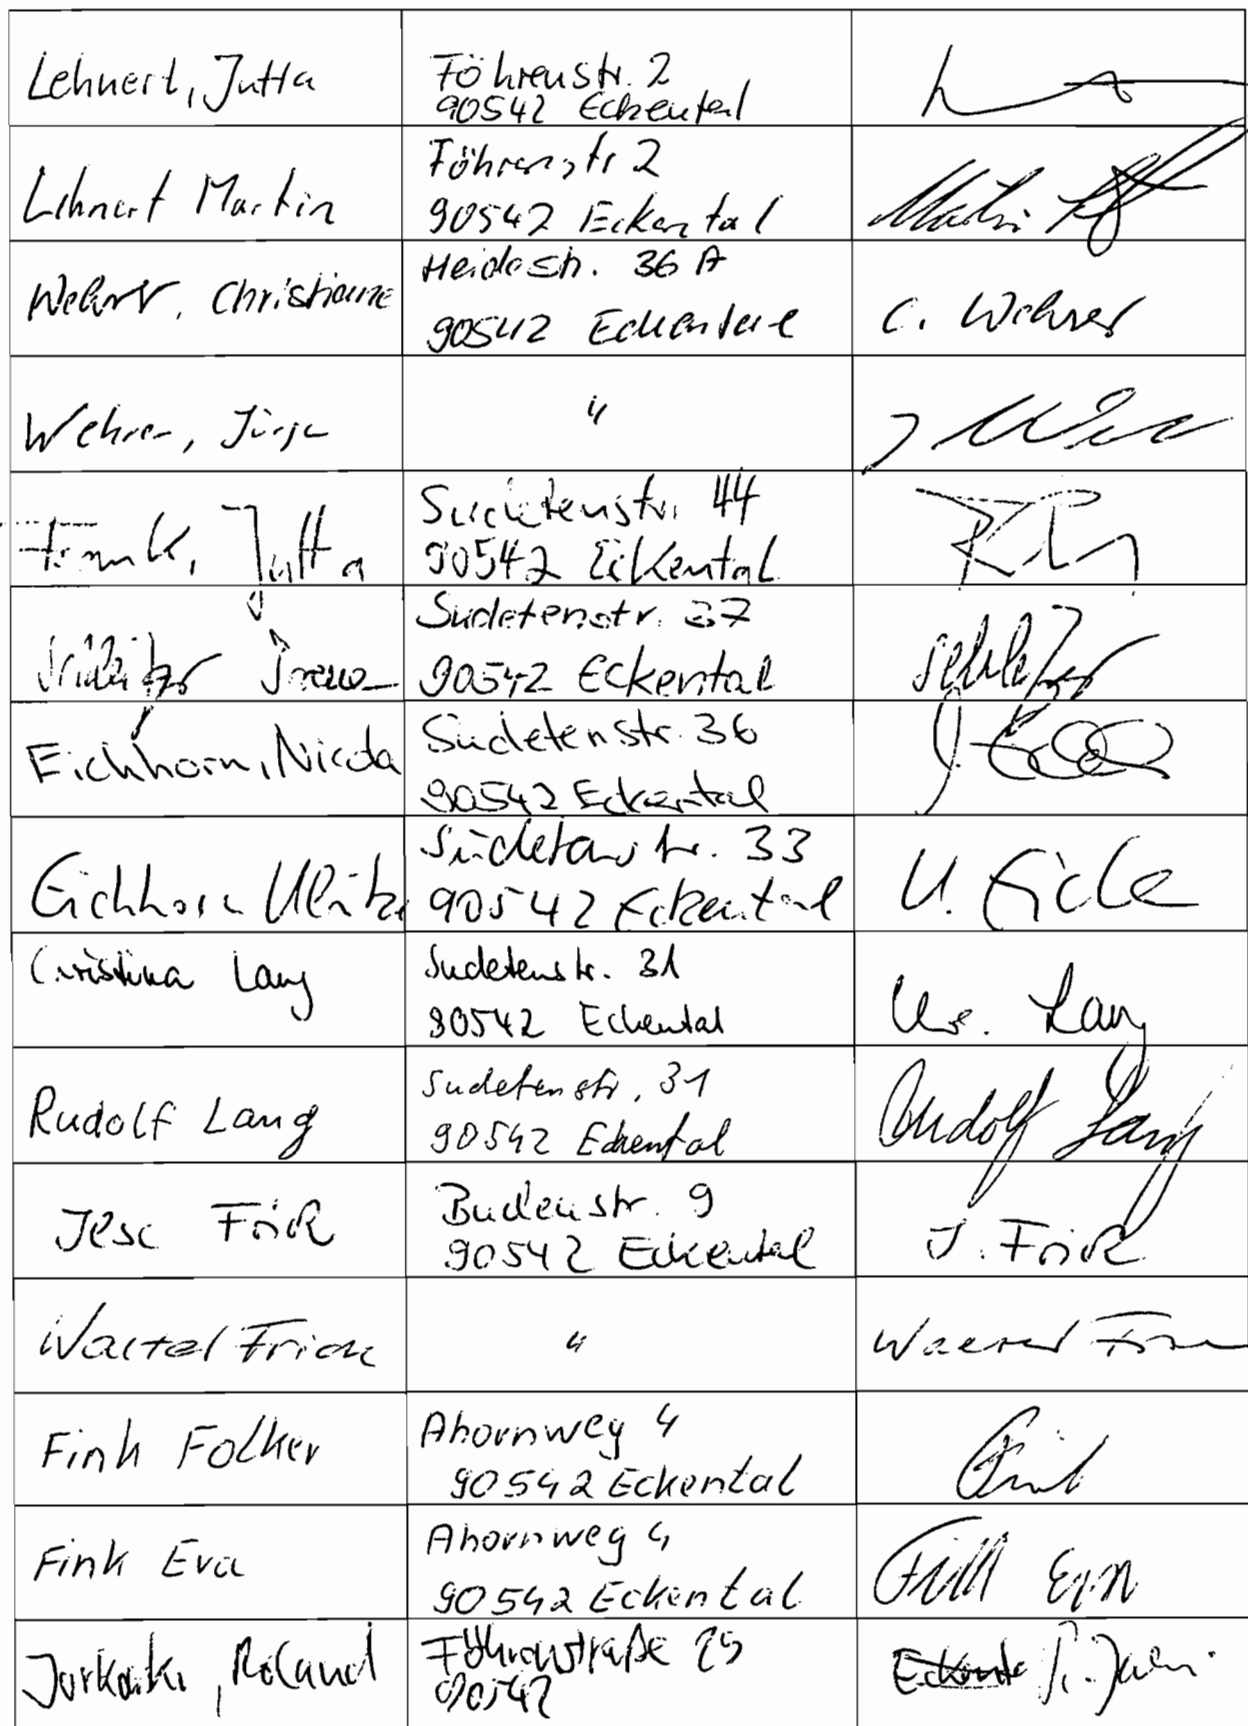 Lehnert, Jutta
Föhrenstr. 2
90542 Eckental
Lehnert Martin
Föhrenstr 2
90542 Eckental
Martin
Wehrer, Christiane
Heidestr. 36 A
90542 Eckental
C. Wehrer
Wehrer, Jürgen
"
Frank, Jutta
Sudetenstr. 44
90542 Eckental
Sudetenstr. 37
90542 Eckental
Eichhorn, Nicola
Sudetenstr. 36
90542 Eckental
Eichhorn Ulrike
Sudetenstr. 33
90542 Eckental
U. Eich
Christina Lang
Sudetenstr. 31
90542 Eckental
Lang
Rudolf Lang
Sudetenstr. 31
90542 Eckental
Rudolf Lang
Ilse Frick
Budenstr. 9
90542 Eckental
I. Frick
Walter Frick
"
Fink Folker
Ahornweg 4
90542 Eckental
Fink
Fink Eva
Ahornweg 4
90542 Eckental
Fink Eva
Roland
Föhrenstraße 29
90542